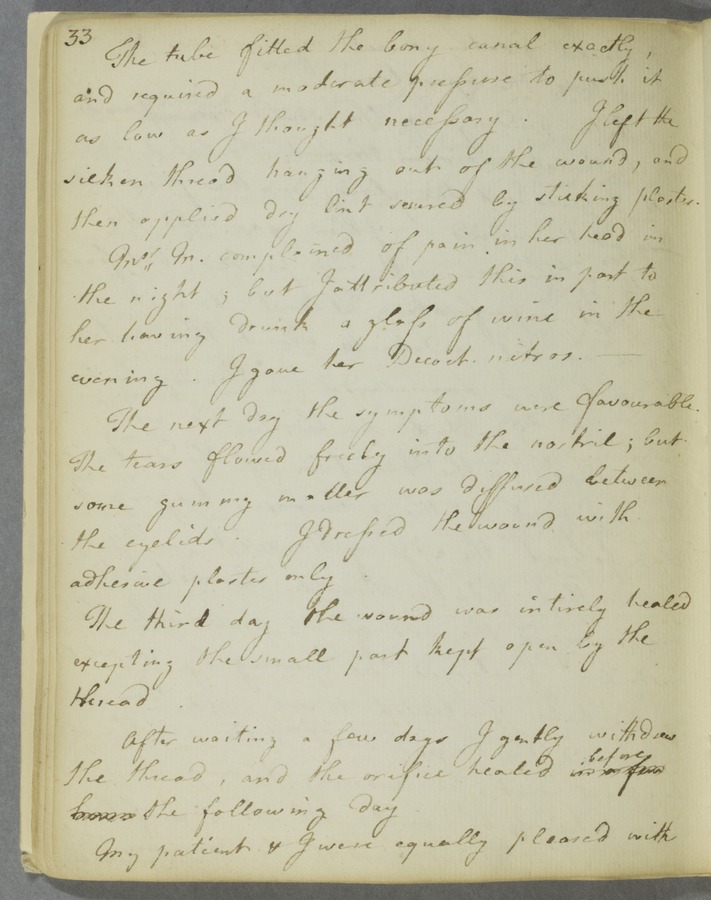 33
The tube fitted the bony canal exactly,
and required a moderate pressure to push it
as low as I thought necessary. I left the
silken thread hanging out of the wound, and
then applied dry lint secured by sticking plaster.
Mrs. M. complained of pain in her head in
the night; but I attributed this in part to
her having drunk a glass of wine in the
evening. I gave her Decoct. nitros. —
The next day the symptoms were favourable.
The tears flowed freely into the nostril; but
some gummy matter was diffused between
the eyelids. I dressed the wound with
adhesive plaster only.
The third day the wound was intirely healed
excepting the small part kept open by the
thread.
After waiting a few days I gently withdrew
the thread, and the orifice healed in a few before
hours the following day.
My patient & I were equally pleased with